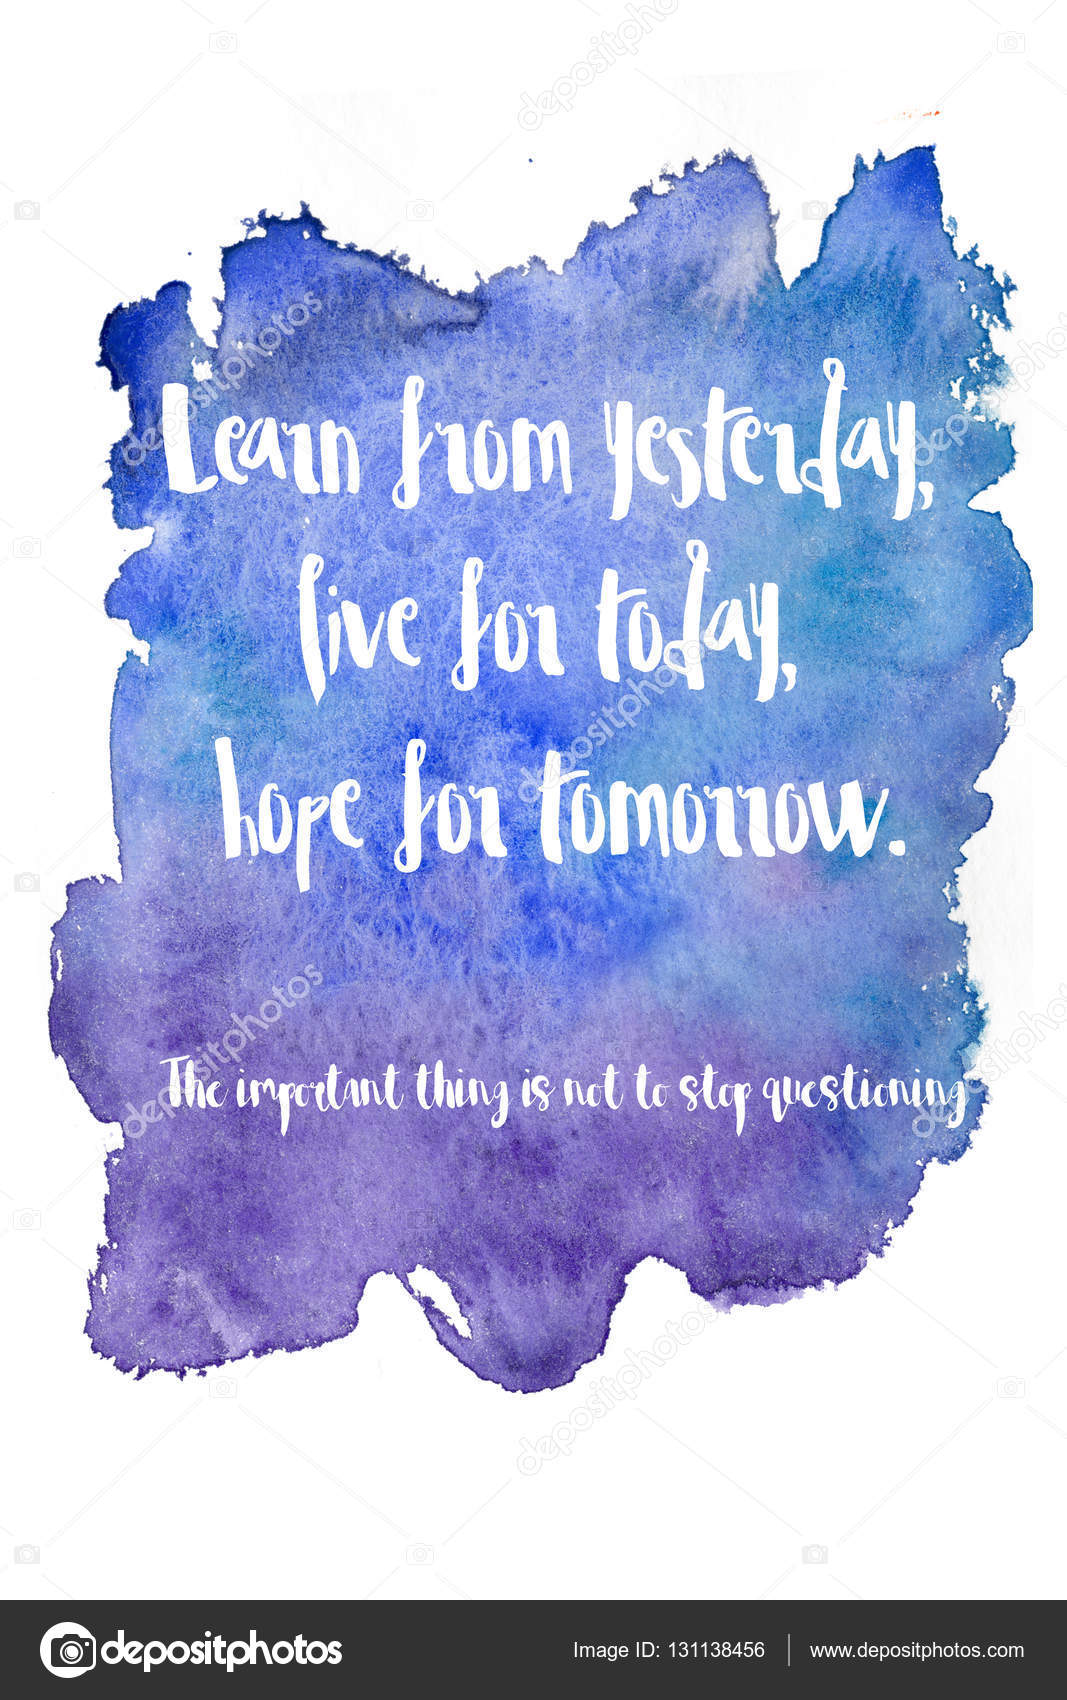 Learn from yesterday,
live for today,
hope for tomorrow.
The important thing is not to stop questioning
depositphotos
Image ID: 131138456
www.depositphotos.com